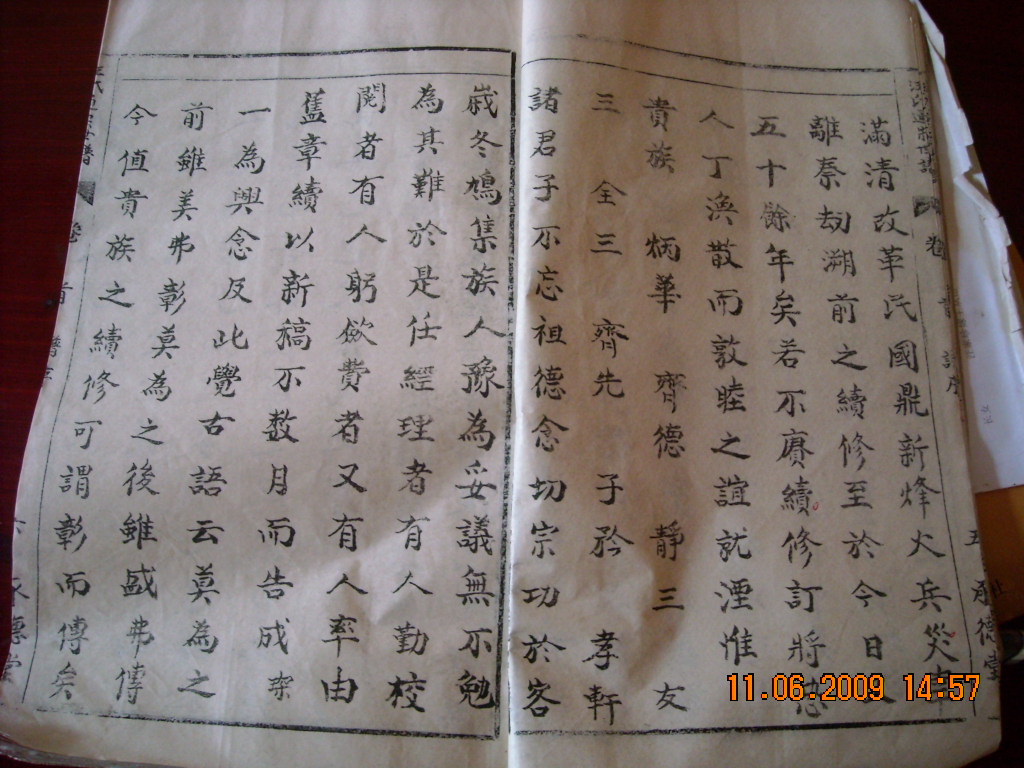 滿清改革民國鼎新烽火兵災
離秦劫溯前之續修至於今日
五十餘年矣若不賡續修訂將恐
人丁渙散而敦睦之誼就湮惟
貴族 炳華 齊德 靜三 友
三 全三 齊先 子矜 孝軒
諸君子不忘祖德念切宗功於客
嵗冬鳩集族人豫為妥議無不勉
為其難於是任經理者有人勤校
閱者有人躬斂費者又有人率由
舊章續以新稿不数月而告成
一為興念及此覺古語云莫為之
前雖美弗彰莫為之後雖盛弗傳
今值貴族之續修可謂彰而傳矣
卷首
五 承德堂
11.06.2009 14:57